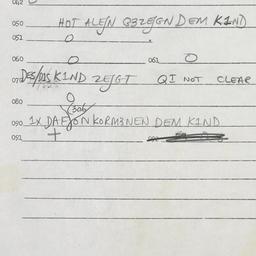 042
050 HOT ALEJN Q3ZEJGN DEM K1ND
052 O
060 O 062 O
070 DES/DIS K1ND ZEJGT QI NOT CLEAR
080 O
306
090 1X DAFJON KORM3NEN DEM K1ND
092 +